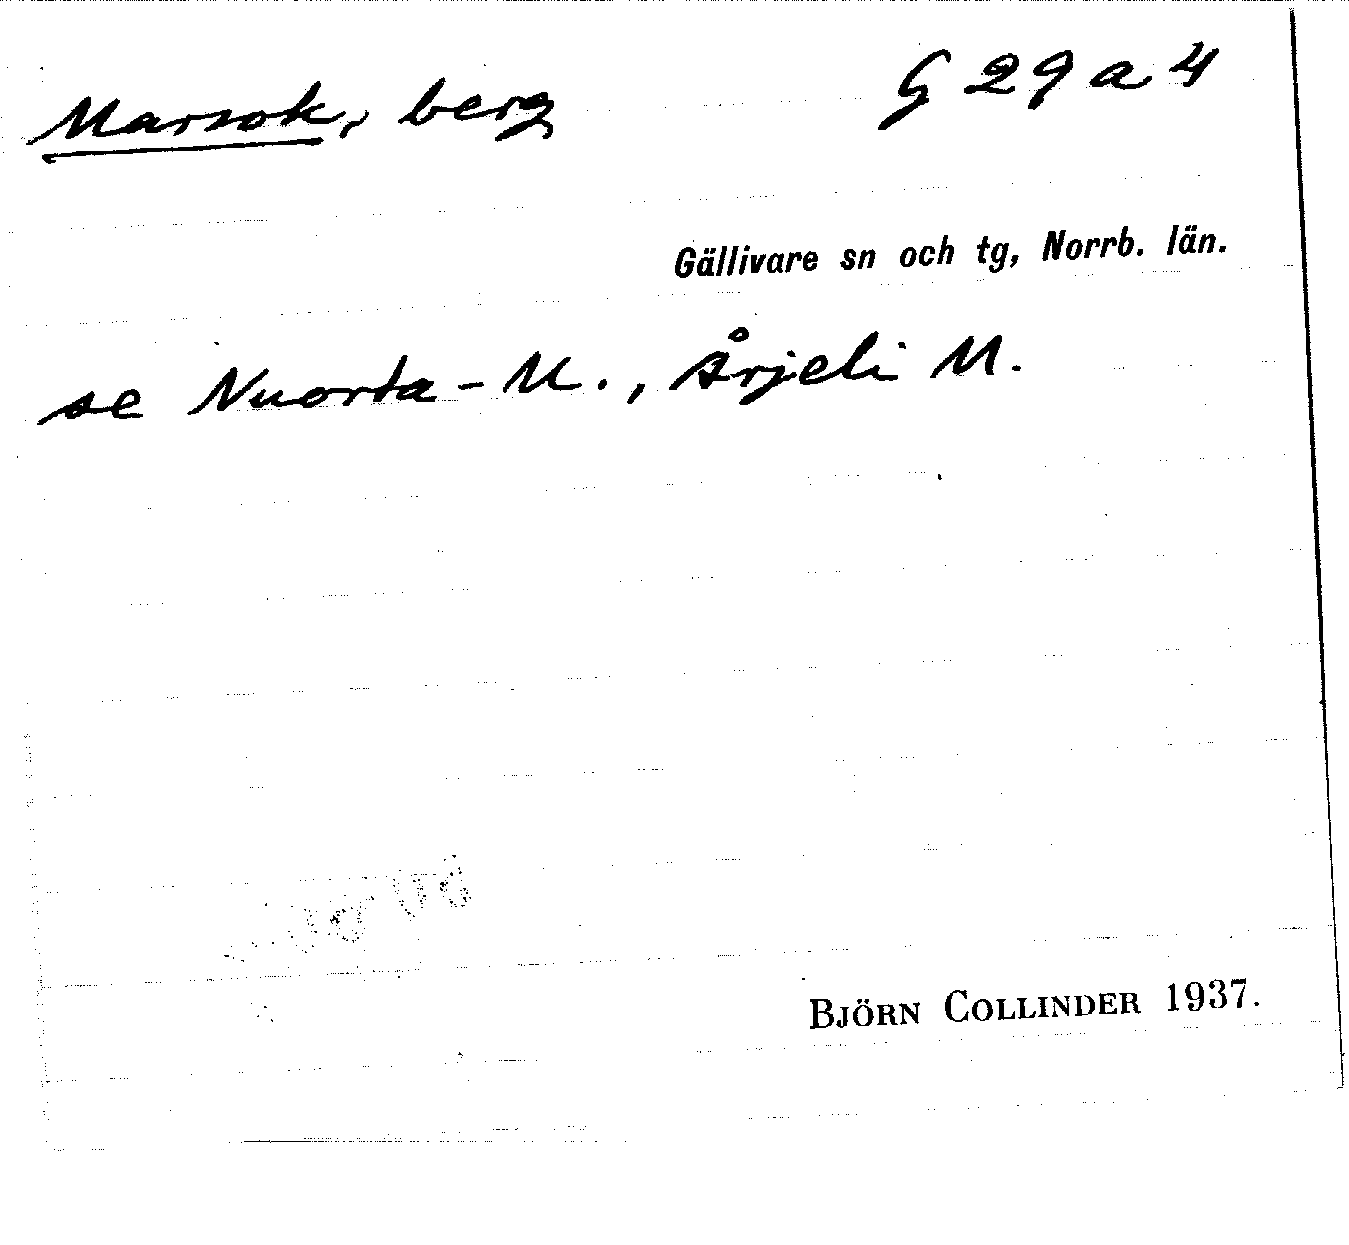 Marsok, berg G 29 a 4
Gällivare sn och tg, Norrb. län.
se Nuorta-M., Årjeli M.
BJÖRN COLLINDER 1937.